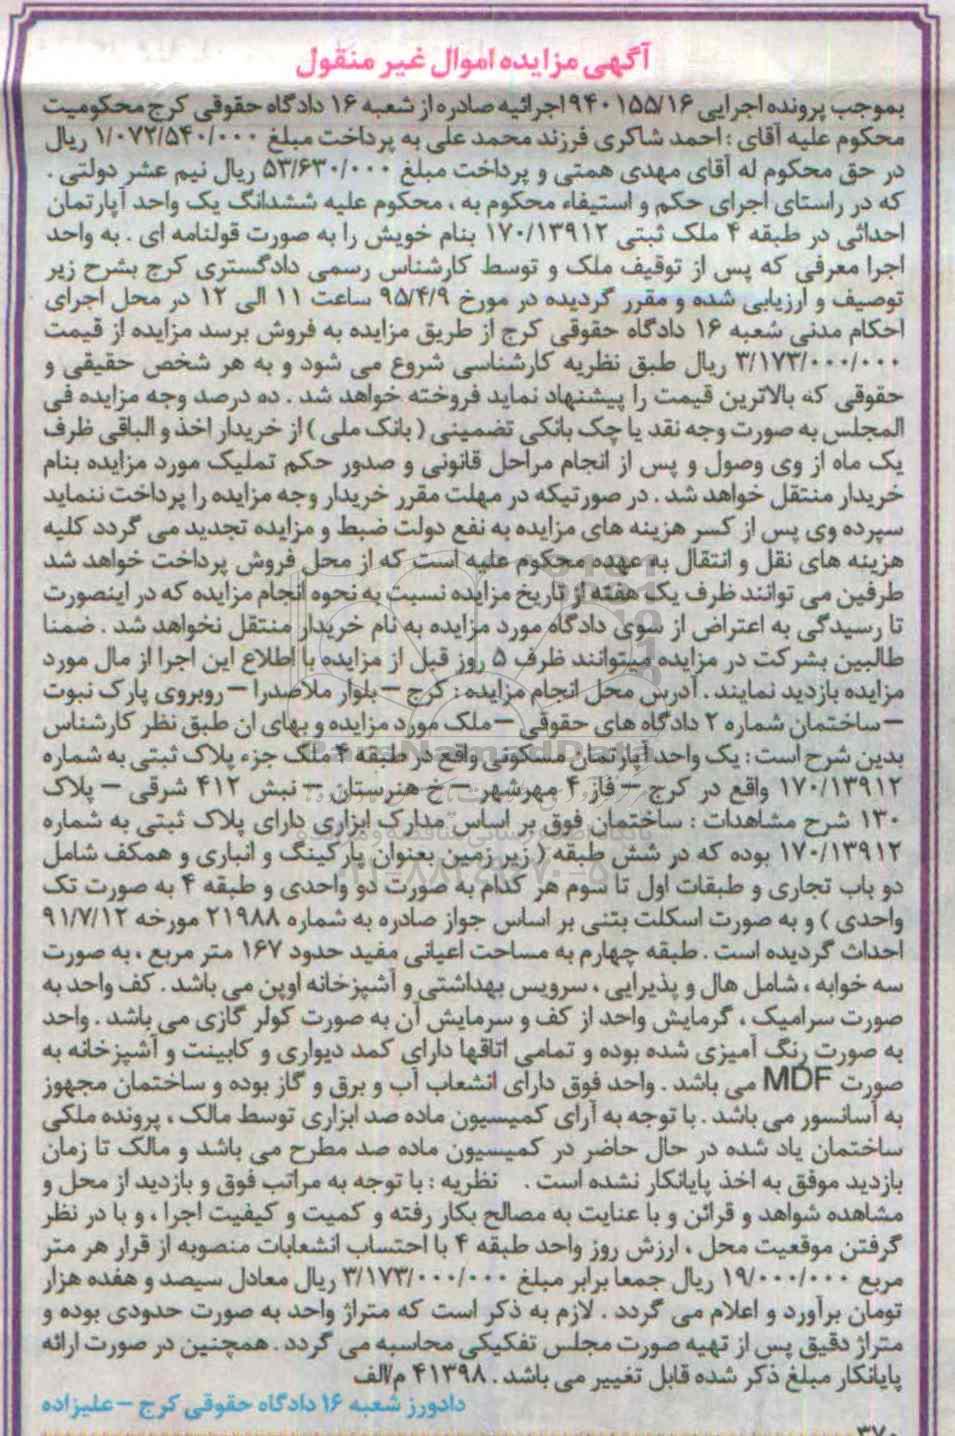 آگهی مزایده اموال غیر منقول
بموجب پرونده اجرایی ۹۴۰۱۵۵/۱۶ اجرائیه صادره از شعبه ۱۶ دادگاه حقوقی کرج محکومیت
محکوم علیه آقای : احمد شاکری فرزند محمد علی به پرداخت مبلغ ۱/۰۷۲/۵۴۰/۰۰۰ ریال
در حق محکوم له آقای مهدی همتی و پرداخت مبلغ ۵۳/۶۳۰/۰۰۰ ریال نیم عشر دولتی .
که در راستای اجرای حکم و استیفاء محکوم به ، محکوم علیه ششدانگ یک واحد آپارتمان
احداثی در طبقه ۴ ملک ثبتی ۱۷۰/۱۳۹۱۲ بنام خویش را به صورت قولنامه ای . به واحد
اجرا معرفی که پس از توقیف ملک و توسط کارشناس رسمی دادگستری کرج بشرح زیر
توصیف و ارزیابی شده و مقرر گردیده در مورخ ۹۵/۴/۹ ساعت ۱۱ الی ۱۲ در محل اجرای
احکام مدنی شعبه ۱۶ دادگاه حقوقی کرج از طریق مزایده به فروش برسد مزایده از قیمت
۳/۱۷۳/۰۰۰/۰۰۰ ریال طبق نظریه کارشناسی شروع می شود و به هر شخص حقیقی و
حقوقی که بالاترین قیمت را پیشنهاد نماید فروخته خواهد شد . ده درصد وجه مزایده فی
المجلس به صورت وجه نقد یا چک بانکی تضمینی ( بانک ملی ) از خریدار اخذ و الباقی ظرف
یک ماه از وی وصول و پس از انجام مراحل قانونی و صدور حکم تملیک مورد مزایده بنام
خریدار منتقل خواهد شد . در صورتیکه در مهلت مقرر خریدار وجه مزایده را پرداخت ننماید
سپرده وی پس از کسر هزینه های مزایده به نفع دولت ضبط و مزایده تجدید می گردد کلیه
هزینه های نقل و انتقال به عهده محکوم علیه است که از محل فروش پرداخت خواهد شد
طرفین می توانند ظرف یک هفته از تاریخ مزایده نسبت به نحوه انجام مزایده که در اینصورت
تا رسیدگی به اعتراض از سوی دادگاه مورد مزایده به نام خریدار منتقل نخواهد شد . ضمنا
طالبین بشرکت در مزایده میتوانند ظرف ۵ روز قبل از مزایده با اطلاع این اجرا از مال مورد
مزایده بازدید نمایند . آدرس محل انجام مزایده : کرج – بلوار ملاصدرا – روبروی پارک نبوت
– ساختمان شماره ۲ دادگاه های حقوقی – ملک مورد مزایده و بهای ان طبق نظر کارشناس
بدین شرح است : یک واحد آپارتمان مسکونی واقع در طبقه ۴ ملک جزء پلاک ثبتی به شماره
۱۷۰/۱۳۹۱۲ واقع در کرج – فاز ۴ مهرشهر – خ هنرستان – نبش ۴۱۲ شرقی – پلاک
۱۳۰ شرح مشاهدات : ساختمان فوق بر اساس مدارک ابزاری دارای پلاک ثبتی به شماره
۱۷۰/۱۳۹۱۲ بوده که در شش طبقه ( زیر زمین بعنوان پارکینگ و انباری و همکف شامل
دو باب تجاری و طبقات اول تا سوم هر کدام به صورت دو واحدی و طبقه ۴ به صورت تک
واحدی ) و به صورت اسکلت بتنی بر اساس جواز صادره به شماره ۲۱۹۸۸ مورخه ۹۱/۷/۱۲
احداث گردیده است . طبقه چهارم به مساحت اعیانی مفید حدود ۱۶۷ متر مربع ، به صورت
سه خوابه ، شامل هال و پذیرایی ، سرویس بهداشتی و آشپزخانه اوپن می باشد . کف واحد به
صورت سرامیک ، گرمایش واحد از کف و سرمایش آن به صورت کولر گازی می باشد . واحد
به صورت رنگ آمیزی شده بوده و تمامی اتاقها دارای کمد دیواری و کابینت و آشپزخانه به
صورت MDF می باشد . واحد فوق دارای انشعاب آب و برق و گاز بوده و ساختمان مجهوز
به آسانسور می باشد . با توجه به آرای کمیسیون ماده صد ابزاری توسط مالک ، پرونده ملکی
ساختمان یاد شده در حال حاضر در کمیسیون ماده صد مطرح می باشد و مالک تا زمان
بازدید موفق به اخذ پایانکار نشده است . نظریه : با توجه به مراتب فوق و بازدید از محل و
مشاهده شواهد و قرائن و با عنایت به مصالح بکار رفته و کمیت و کیفیت اجرا ، و با در نظر
گرفتن موقعیت محل ، ارزش روز واحد طبقه ۴ با احتساب انشعابات منصوبه از قرار هر متر
مربع ۱۹/۰۰۰/۰۰۰ ریال جمعا برابر مبلغ ۳/۱۷۳/۰۰۰/۰۰۰ ریال معادل سیصد و هفده هزار
تومان برآورد و اعلام می گردد . لازم به ذکر است که متراژ واحد به صورت حدودی بوده و
متراژ دقیق پس از تهیه صورت مجلس تفکیکی محاسبه می گردد . همچنین در صورت ارائه
پایانکار مبلغ ذکر شده قابل تغییر می باشد . ۴۱۳۹۸ م/الف
دادورز شعبه ۱۶ دادگاه حقوقی کرج – علیزاده